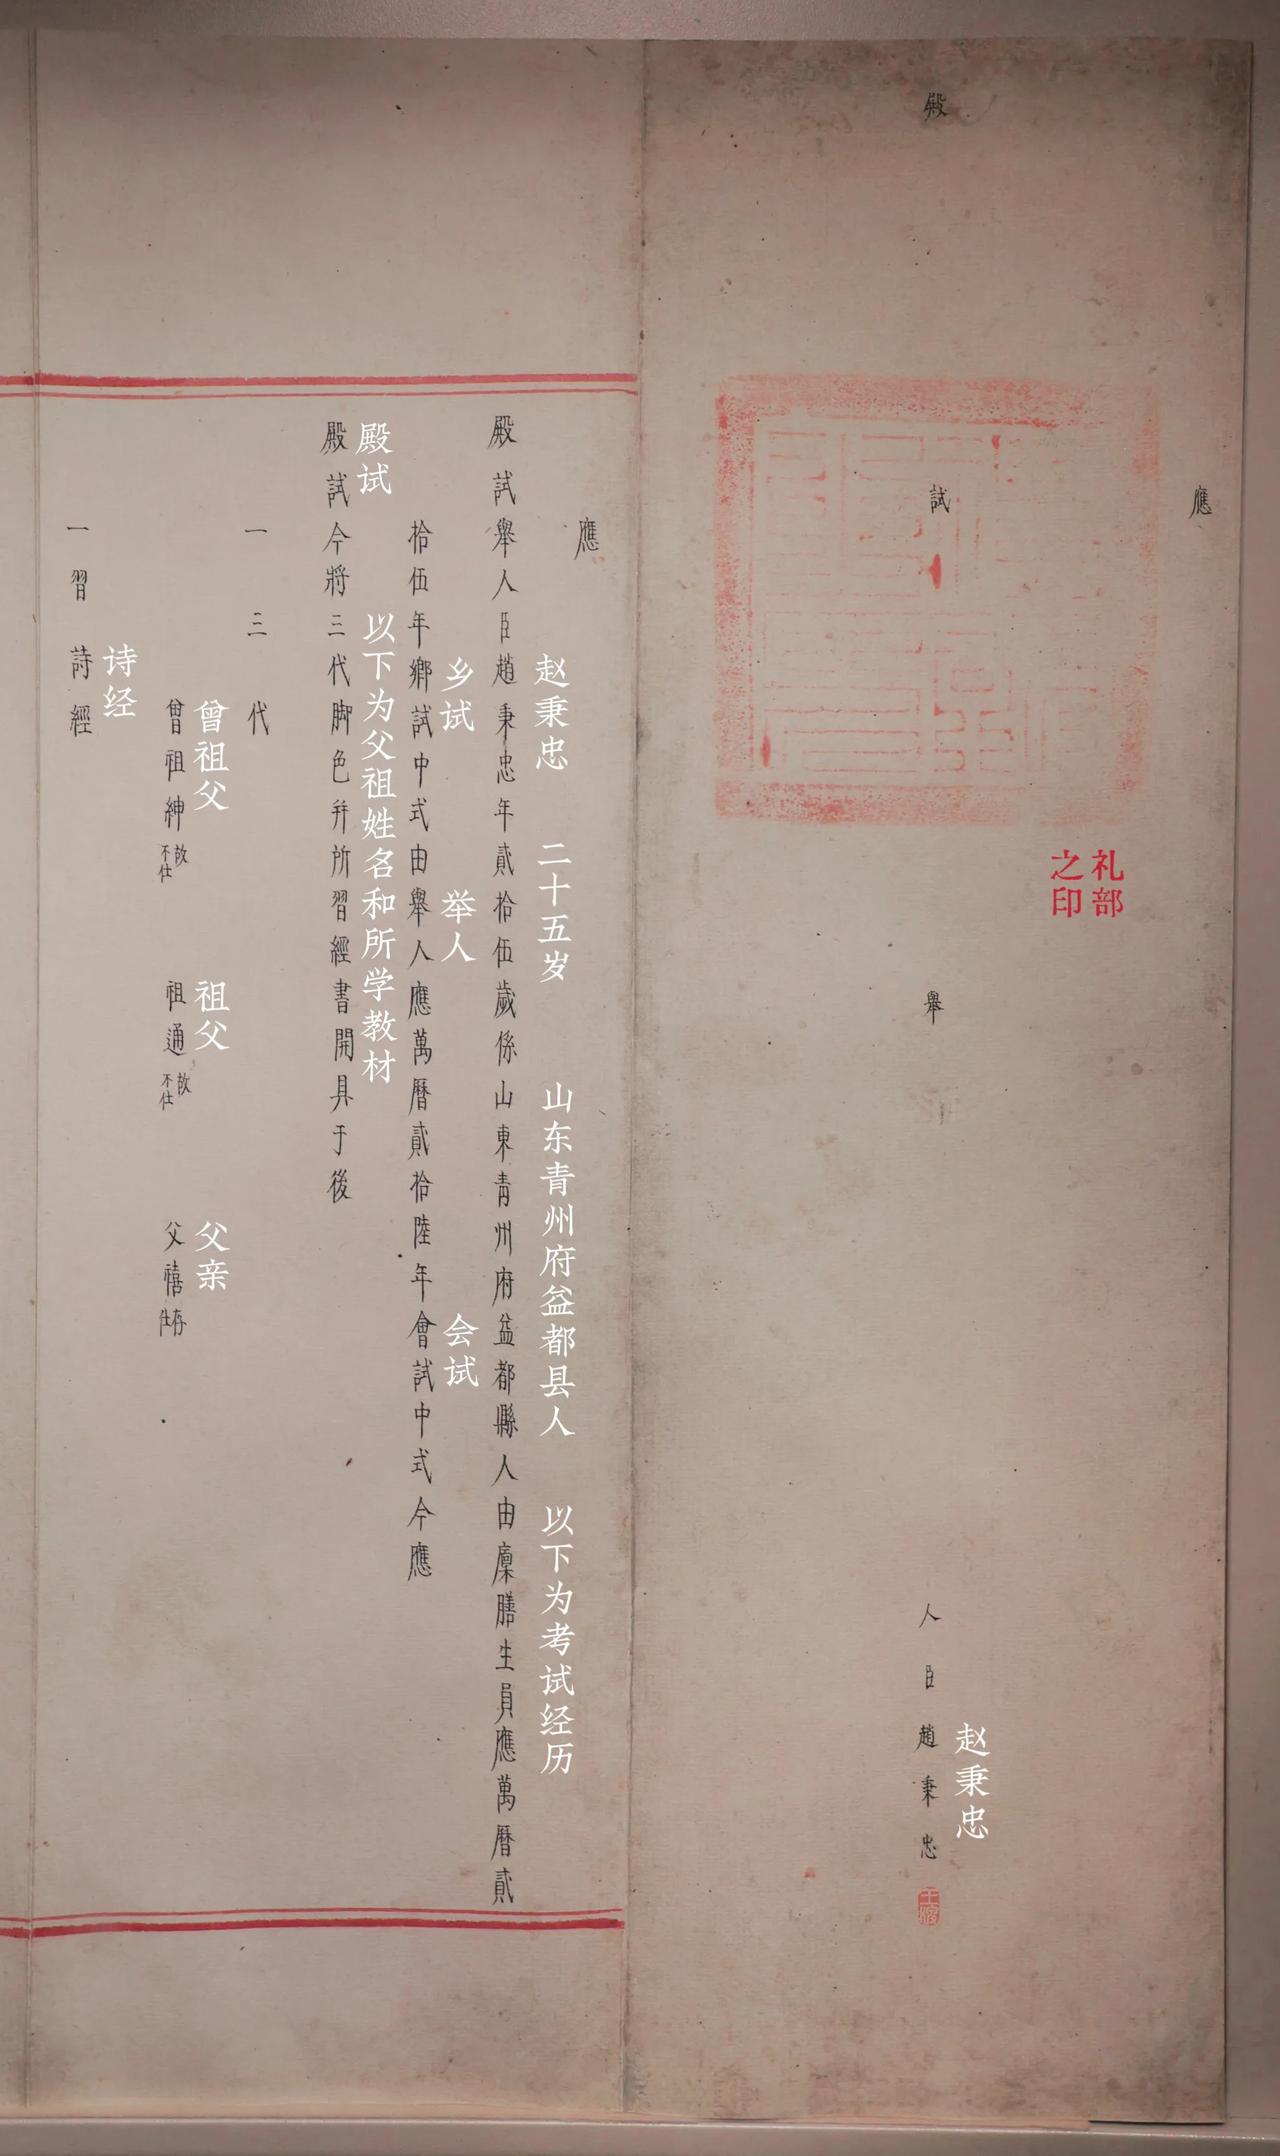 應
殿試舉人臣趙秉忠
赵秉忠
礼部
之印
應
赵秉忠 二十五岁 山东青州府益都县人 以下为考试经历
殿試舉人臣趙秉忠年貳拾伍歲係山東青州府益都縣人由廩膳生員應萬曆貳
乡试 举人 会试
拾伍年鄉試中式由舉人應萬曆貳拾陸年會試中式今應
殿试 以下为父祖姓名和所学教材
殿試今將三代脚色并所習經書開具于後
一三代
曾祖父 祖父 父亲
曾祖紳故不仕 祖通故不仕 父禧存仕
诗经
一習詩經